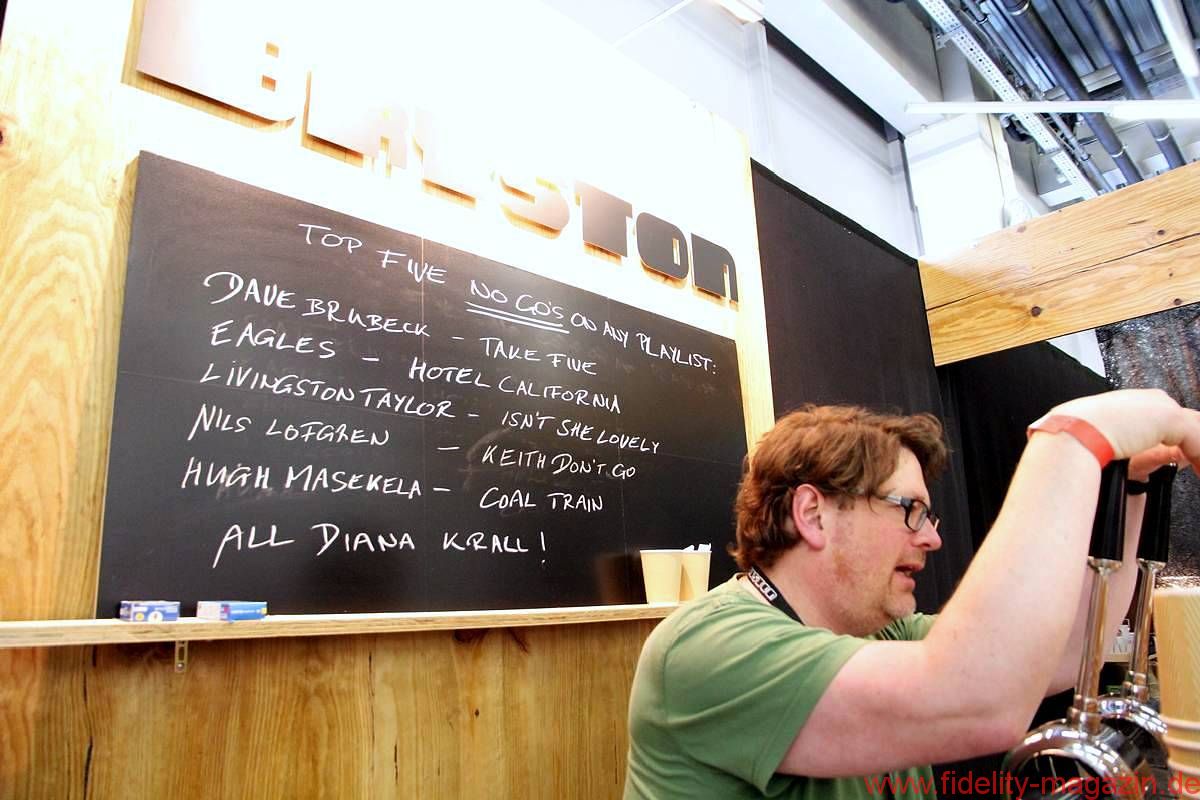 BALSTON
TOP FIVE NO GO'S ON ANY PLAYLIST:
DAVE BRUBECK - TAKE FIVE
EAGLES - HOTEL CALIFORNIA
LIVINGSTON TAYLOR - ISN'T SHE LOVELY
NILS LOFGREN - KEITH DON'T GO
HUGH MASEKELA - COAL TRAIN
ALL DIANA KRALL!
www.fidelity-magazin.de